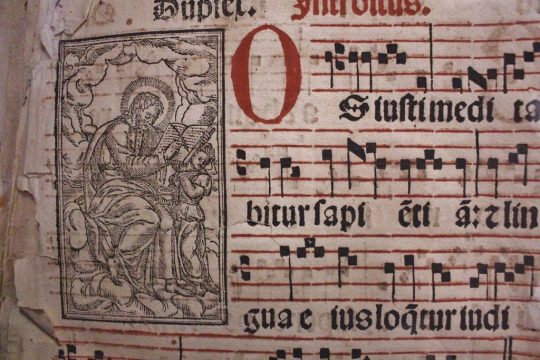 Duplex. Introitus.
OS iusti medita
bitur sapiẽti ã: ⁊ lin
gua eius loq̃tur iudi